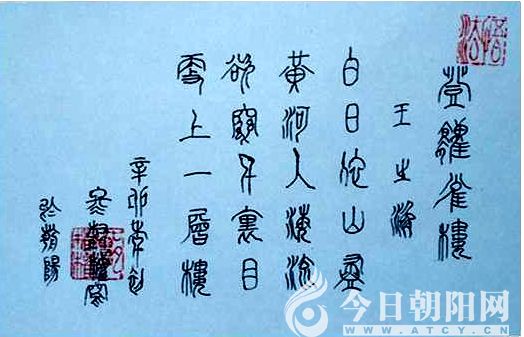 登鸛雀樓
王之渙
白日依山盡
黃河入海流
欲窮千裏目
更上一層樓
辛卯春
於朝陽
今日朝阳网
WWW.ATCY.CN